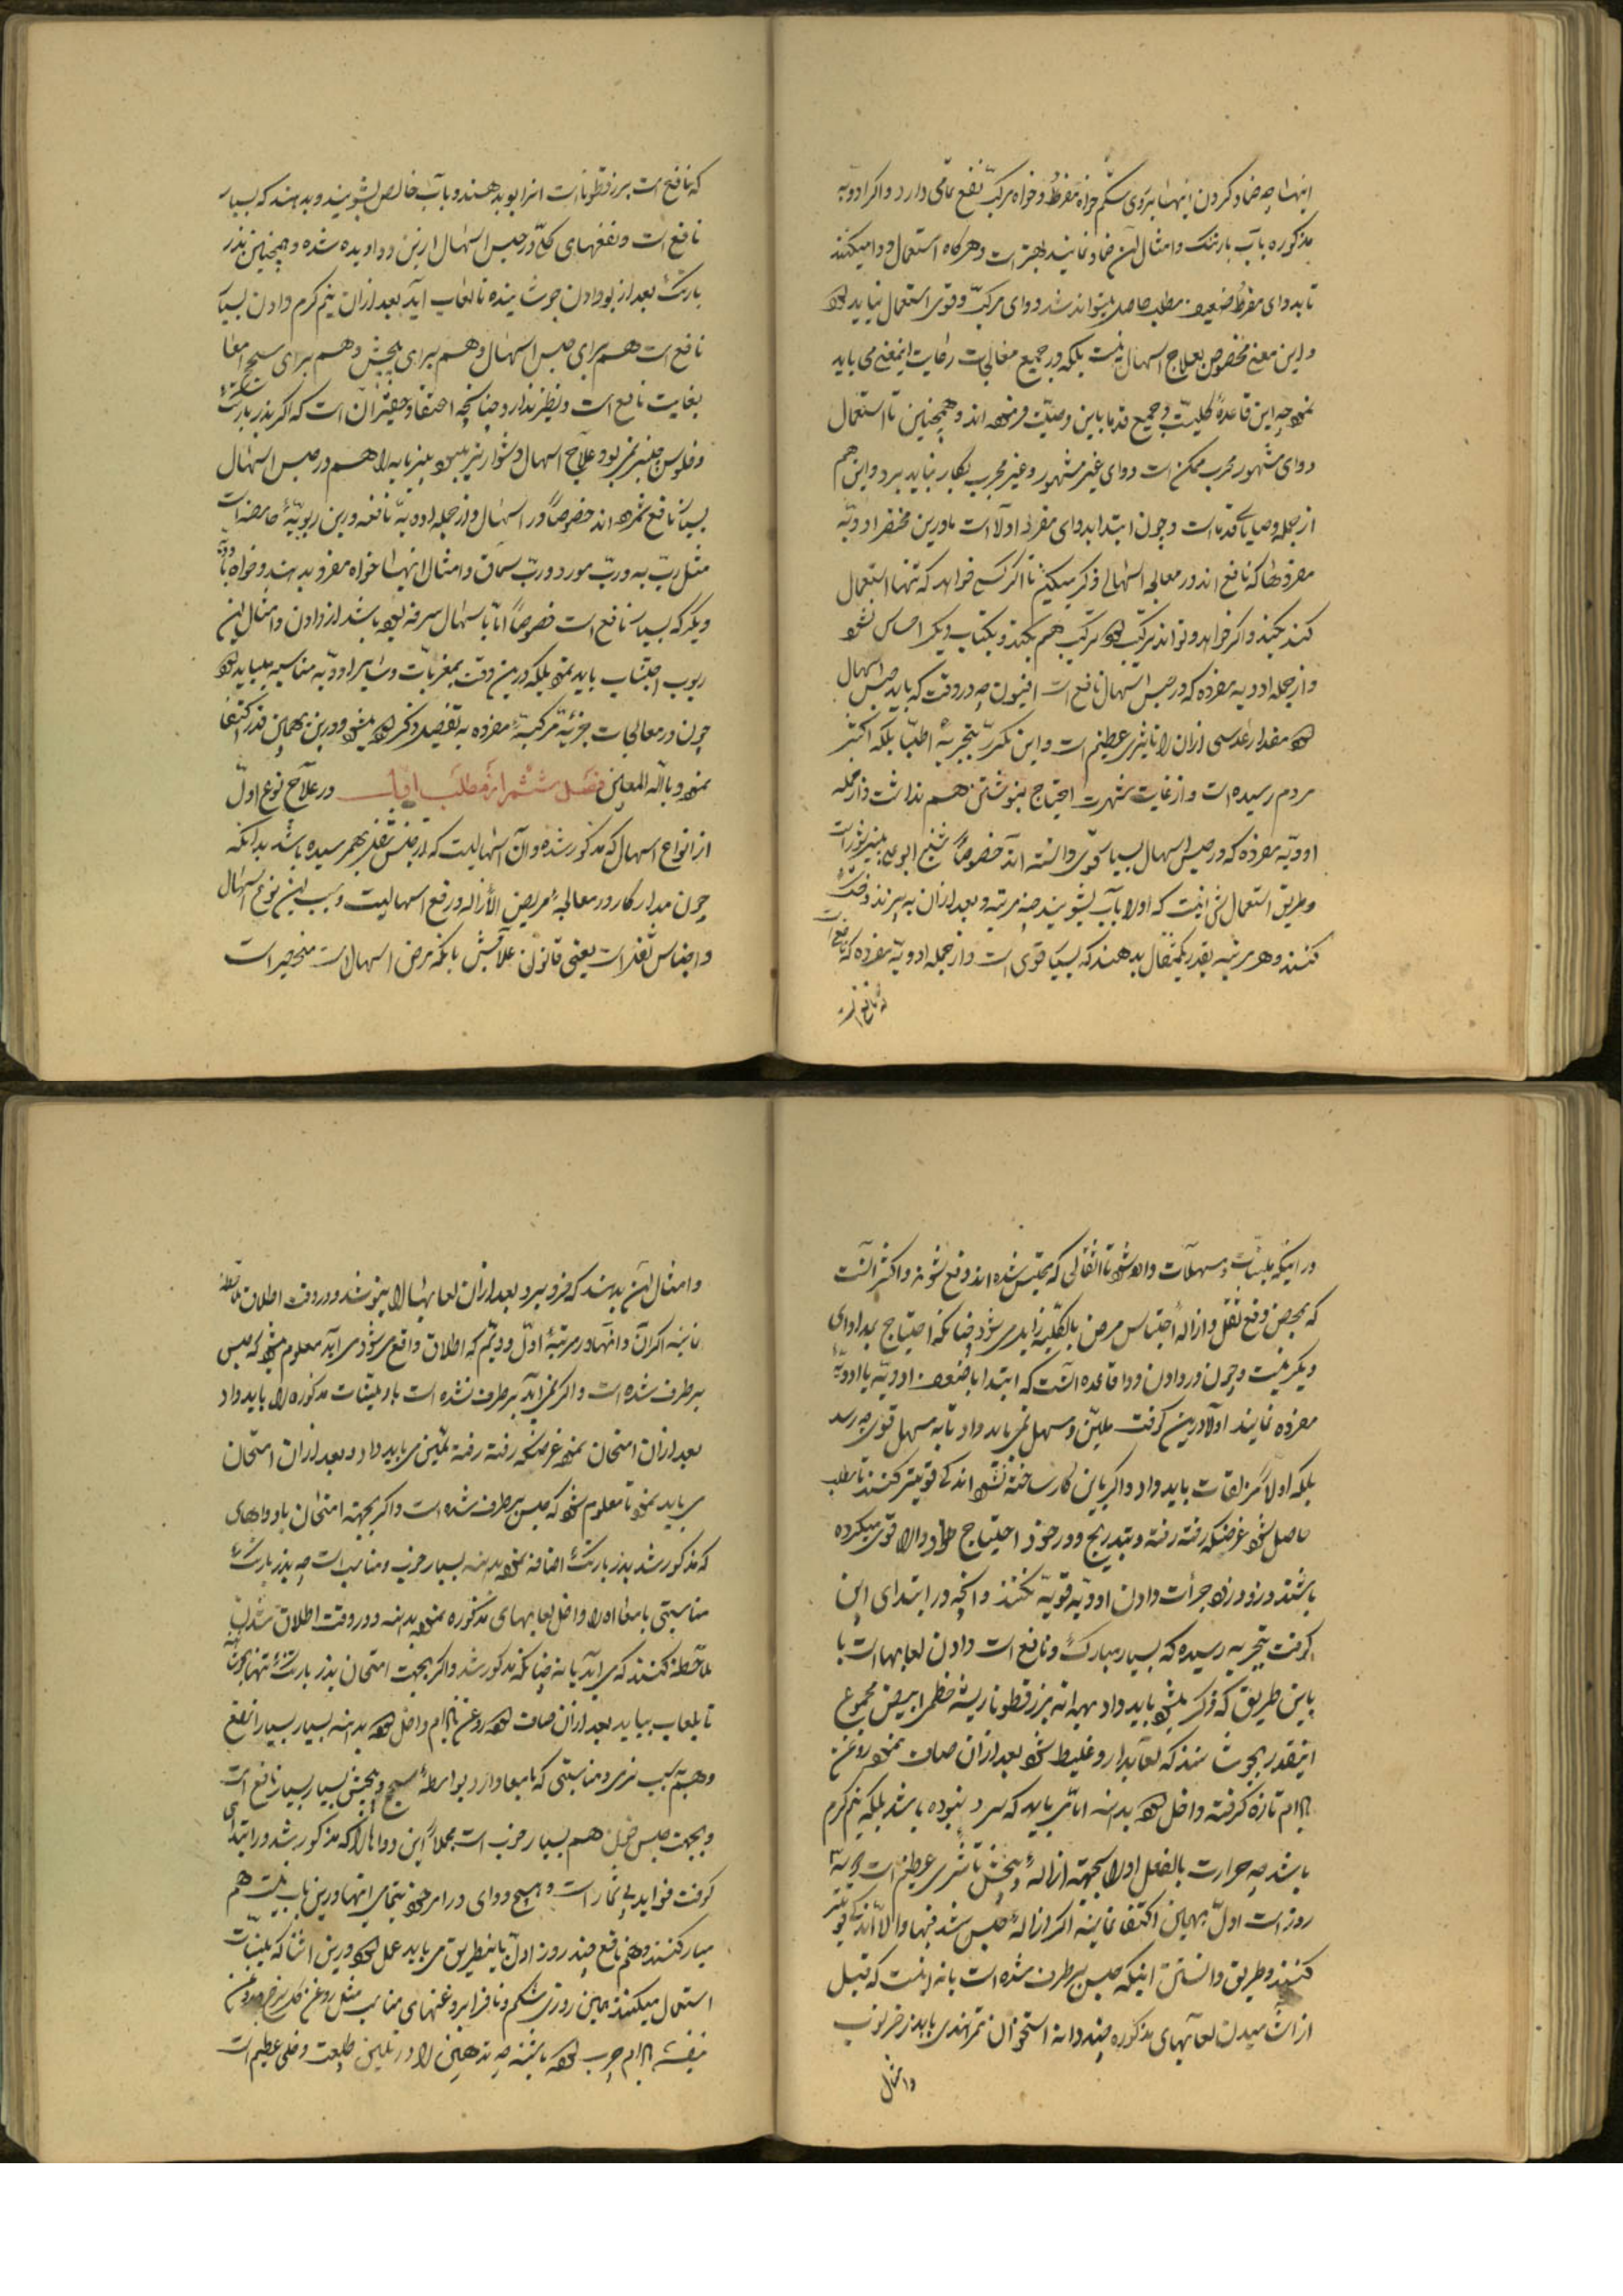 اینها چه ضماد کردن اینها بر روی شکم خواه مفرد و خواه مرکب نفع تمامی دارد و اکر ادویه
مذکوره بآب بارتنک و امثال آن ضماد نمایند بهتر است و هرکاه استعمال دوا میکنند
تا بدوای مفرد ضعیف مطلب حاصل میتواند شد دوای مرکب و قوی استعمال نباید کرد
و این معنی مخصوص بعلاج اسهال نیست بلکه در جمیع معالجات رعایت اینمعنی می باید
نمود چه این قاعده کلیست و جمیع قدما باین وصیت فرموده اند و همچنین تا استعمال
دوای مشهور مجرب ممکن است دوای غیر مشهور و غیر مجرب بکار نباید برد و این هم
از جمله وصایای قدما است و چون ابتدا بدوای مفرد اولا است ما درین مختصر ادویه
مفرده را که نافع اند در معالجه اسهال ذکر میکنیم تا اکر کسی خواهد که تنها استعمال
کند بکند و اکر خواهد و تواند ترکیب کرد ترکیب هم بکند و بکتاب دیکر احساس نشود
و از جمله ادویه مفرده که در حبس اسهال نافع است افیون چه در وقت که باید حبس اسهال
کرد مقدار عدسی ازان را تاثیری عظیم است و این مکرر بتجربه اطبا بلکه اکثر
مردم رسیده است و از غایت شهرت احتیاج بنوشتن هم نداشت و از جمله
ادویه مفرده که در حبس اسهال بسیار قوی دانسته اند خصوصا شیخ ابو علی پنیر شور است
و طریق استعمالش اینست که اولا بآب بشویند چند مرتبه و بعد ازان بپزند و خشک
کنند و هر مرتبه بقدر یکمثقال بدهند که بسیار قوی است و از جمله ادویه مفرده که نافع است
که نافع است
که نافع است بزرقطونا است انرا بو بدهند و بآب خالص بشویند و بدهند که بسیار
نافع است و نفعهای کلی در حبس اسهال ازین دوا دیده شده و همچنین بذر
بارتنک بعد از بو دادن جوشانیده تا لعاب اید بعد ازان نیم کرم دادن بسیار
نافع است هم برای حبس اسهال و هم برای پیچش و هم برای سحج امعا
بغایت نافع است و نظیر ندارد چنانچه اعتقاد حقیر آن است که اکر بذر بارتنک
و فلوس خیارشنبر نمی بود علاج اسهال دشوار می بود پنیر مایه را هم در حبس اسهال
بسیار نافع شمرده اند خصوصا در اسهال و از جمله ادویه نافعه درین ربوبه حامضه است
مثل رب به و رب مورد و رب سماق و امثال اینها خواه مفرد بدهند و خواه با دوای
دیکر که بسیار نافع است خصوصا اما با اسهال سرفه بوده باشد از دادن و امثال این
ربوب اجتناب باید نمود بلکه درین وقت بمغریات و سایر ادویه مناسبه میباید کرد
چون در معالجات جزئیه مرکبه مفرده به تفصیل ذکر کرده میشود درین بهمین قدر اکتفا
نمود و بالله المعین فصل ششم از مطلب اول در علاج نوع اول
از انواع اسهال که مذکور شده و آن اسهالیست که از حبس ثفل بهم رسیده باشد بدانکه
چون مدار کار در معالجه مریض الا ازاله و رفع اسهالیست و سبب این نوع اسهال
و احتباس ثفل است یعنی قانون علاجش بانکه مرض اسهالست منحصر است
در اینکه ملینات و مسهلات داده شود تا اثفالی که محتبس شده اند دفع شوند و اکثر آنست
که بمحض دفع ثفل و ازاله احتباس مرض بالکلیه زایل می شود چنانکه احتیاج بمداوای
دیکر نیست و چون در دادن دوا قاعده آنست که ابتدا باضعف ادویه یا ادویه
مفرده نمایند اولا درین کوفت ملین و مسهل نمی باید داد تا به مسهل قوی چه رسد
بلکه اولا مزلقات باید داد و اکر باین کار ساخته نشود اندکی قویتر کنند تا مطلب
حاصل شود غرضکه رفته رفته و بتدریج و در خور احتیاج دوا را قوی میکرده
باشند و زود زود جرأت دادن ادویه قویه نکنند و انچه در ابتدای این
کوفت بتجربه رسیده که بسیار مبارک و نافع است دادن لعابها است با
باین طریق که ذکر میشود باید داد بهدانه بزرقطونا ریشه خطمی ابیض مجموع
اینقدر بجوشانند که لعابدار و غلیظ شود بعد ازان صاف نموده روغن
بادام تازه کرفته داخل کرده بدهند اما می باید که سرد نبوده باشد بلکه نیم کرم
باشد چه حرارت بالفعل اورا بجهة ازاله و پیچش تاثیری عظیم است
روز است اول بهمین اکتفا نمایند اکر ازاله حبس شد فبها و الا اندکی قویتر
کنند و طریق دانستن اینکه حبس برطرف شده است یا نه اینست که قبل
از اشامیدن لعابهای مذکوره چند دانه استخوان تمرهندی یا بذر خرنوب
و امثال
و امثال آن بدهند که فرو برد بعد ازان لعابها را بنوشد و در وقت اطلاق ملاحظه
نمایند اکر آن دانهها در مرتبه اول و دویم که اطلاق واقع می شود می اید معلوم میشود که حبس
برطرف شده است و اکر نمی اید برطرف نشده است باز ملینات مذکوره را باید داد
بعد ازان امتحان نمود غرضکه رفته رفته تلیین می باید داد و بعد ازان امتحان
می باید نمود تا معلوم شود که حبس برطرف شده است و اکر بجهة امتحان با دواهای
که مذکور شد بذر بارتنک اضافه نموده بدهند بسیار خوب و مناسب است چه بذر بارتنک
مناسبتی با امعا دارد داخل لعابهای مذکوره نموده بدهند و در وقت اطلاق
ملاحظه کنند که می اید یا نه چنانکه مذکور شد و اکر بجهت امتحان بذر بارتنک تنها بجوشانند
تا بلعاب بیاید بعد ازان صاف کرده روغن بادام داخل کرده بدهند بسیار بسیار انفع
و هم بسبب نرمی و مناسبتی که با امعا دارد بواسطه سحج و پیچش بسیار بسیار نافع است
و بجهت حبس خون هم بسیار خوب است مجملا این دواها را که مذکور شد در ابتدای
کوفت فواید بی شمار است و هیچ دوای در امر خود بتمامی اینها درین باب نیست هم
مبارکند و هم نافع چند روز اول باینطریق می باید عمل کرد و درین اثنا که ملینات
استعمال میکنند همین روز روی شکم و ناف را بروغنهای مناسب مثل روغن کل سرخ و روغن
بنفشه بادام چرب کرده باشند چه تدهین را در تلیین طبیعت دخلی عظیم است